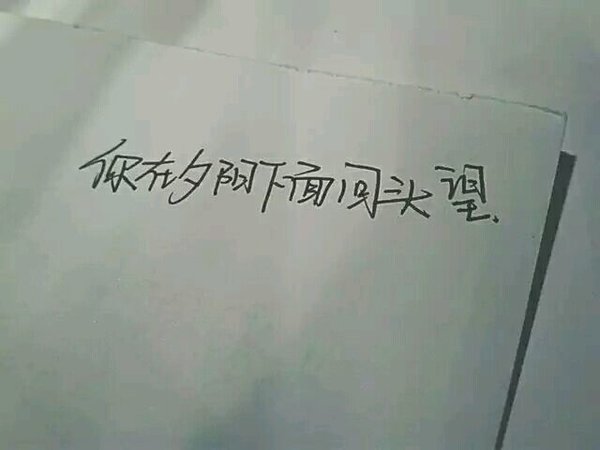 你在夕阳下面回头望.